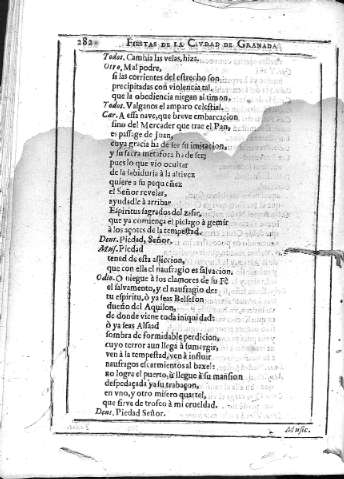 282 FIESTAS DE LA CIVDAD DE GRANADA
Todos. Cambia las velas, hiza.
Otro, Mal podre,
si las corrientes del estrecho son
precipitadas con violencia tal,
que la obediencia niegan al timon,
Todos. Valganos el amparo celestial.
Car. A essa nave, que breve embarcacion
sino del Mercader que trae el Pan,
es passage de Juan,
cuya gracia ha de ser su imitacion,
y su sacra metafora ha de ser;
pues lo que vio ocultar
de la sabiduria à la altivez
quiere a su pequeñez
el Señor revelar,
ayudadle à arribar
Espiritus sagrados del zafir,
que ya comiença el pielago à gemir
à los açotes de la tempestad.
Dent. Piedad, Señor.
Mus. Piedad
tened de esta afliccion,
que con ella el naufragio es salvacion,
Odio. O niegue à los clamores de su Fè
el salvamento, y el naufragio dè
tu espiritu, ò ya seas Belsefon
dueño del Aquilon,
de donde viene toda iniquidad:
ò ya seas
sombra de formidable perdicion,
cuyo terror aun llega à sumergir,
ven à la tempestad, ven à influir
naufragos escarmientos al baxel:
no logre el puerto, ò llegue à su mansion
despedaçada ya su trabaçon,
en vno, y otro misero quartel,
que sirva de trofeo à mi crueldad.
Dent. Piedad Señor.
Music.